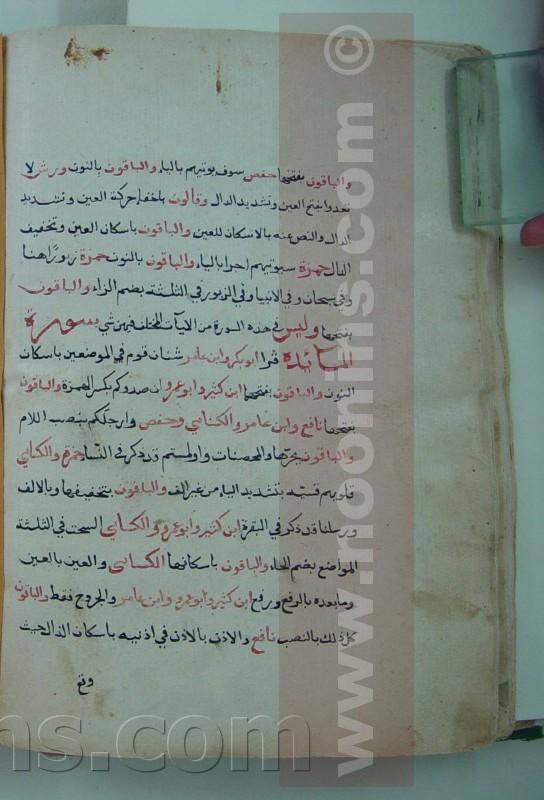 والباقون بفتحها حفص سوف يوتيهم بالياء والباقون بالنون ورش لا
تعدوا بفتح العين وتشديد الدال وقالون باخفاء حركة العين وتشديد
الدال والنص عنه بالاسكان للعين والباقون باسكان العين وتخفيف
الدال حمزة سيوتيهم اجرا بالياء والباقون بالنون حمزة زبورا هنا
وفي سبحان وفي الانبيا وفي الزبور في الثلثة بضم الزاء والباقون
بفتحها وليس في هذه السورة من الآيات المختلف فيهن شي سورة
المائدة قرا ابو بكر وابن عامر شنان قوم في الموضعين باسكان
النون والباقون بفتحها ابن كثير وابو عمرو ان صدوكم بكسر الهمزة والباقون
بفتحها نافع وابن عامر والكسائي وحفص وارجلكم بنصب اللام
والباقون بجرها والمحصنات واو لمستم قد ذكر في النسا حمزة والكسائي
قلوبهم قسية بتشديد الياء من غير الف والباقون بتخفيفها وبالالف
ورسلنا قد ذكر في البقرة ابن كثير وابو عمرو والكسائي السحت في الثلثة
المواضع بضم الحاء والباقون باسكانها الكسائي والعين بالعين
وما بعده بالرفع ورفع ابن كثير وابو عمرو وابن عامر والجروح فقط والباقون
كل ذلك بالنصب نافع والاذن بالاذن في اذنيه باسكان الذال حيث
وقع
www.noorlis.com ©
ns.com